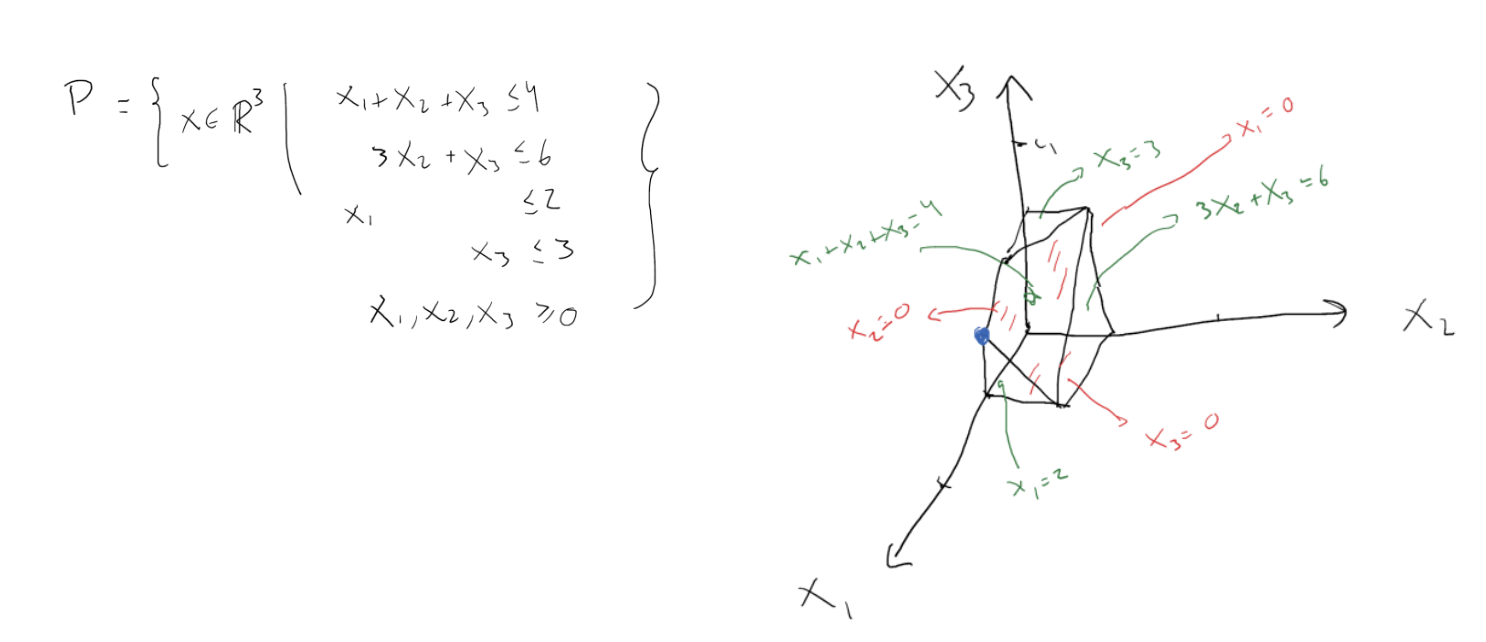 P = { x ∈ ℝ³ | x₁ + x₂ + x₃ ≤ 4
3x₂ + x₃ ≤ 6
x₁ ≤ 2
x₃ ≤ 3
x₁, x₂, x₃ ≥ 0 }
x₃
4
x₁ = 0
x₃ = 3
3x₂ + x₃ = 6
x₁ + x₂ + x₃ = 4
x₂ = 0
x₂
x₃ = 0
x₁ = 2
x₁